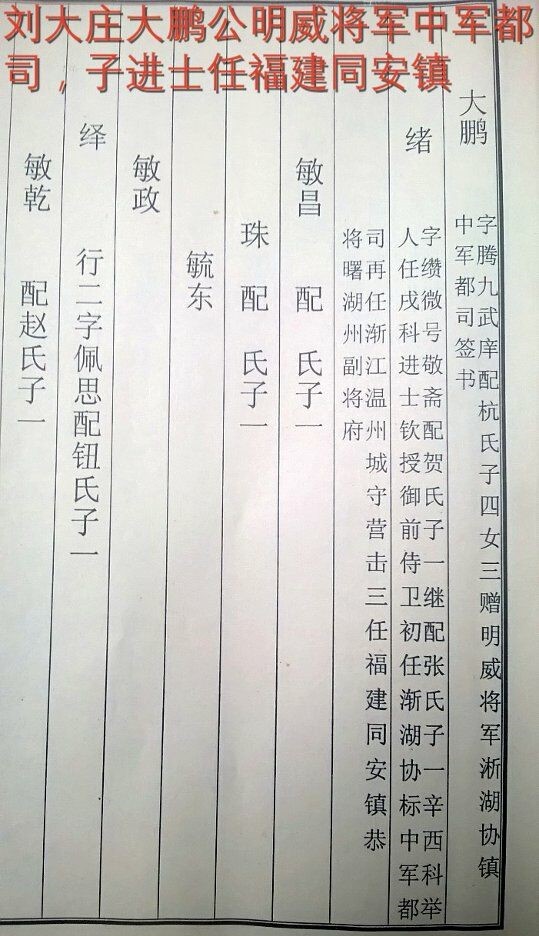 刘大庄大鹏公明威将军中军都
司，子进士任福建同安镇
大鹏
字腾九武庠配杭氏子四女三赠明威将军淅湖协镇
中军都司签书
绪
字缵微号敬斋配贺氏子一继配张氏子一辛西科举
人任戌科进士钦授御前侍卫初任渐湖协标中军都
司再任渐江温州城守营击三任福建同安镇恭
将曙湖州副将府
敏昌 配 氏子一
珠 配 氏子一
毓东
敏政
绎 行二字佩思配钮氏子一
敏乾 配赵氏子一